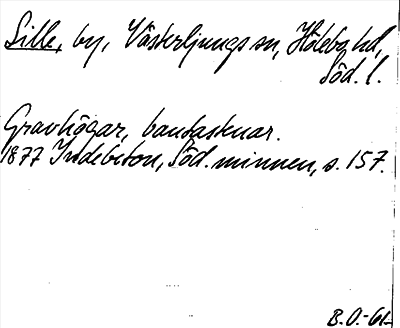 Sille, by, Västerljungs sn, Hölebo hd,
Söd. l.
Gravhögar, bautastenar.
1877 Indebetou, Söd. minnen, s. 157.
B.O.-61